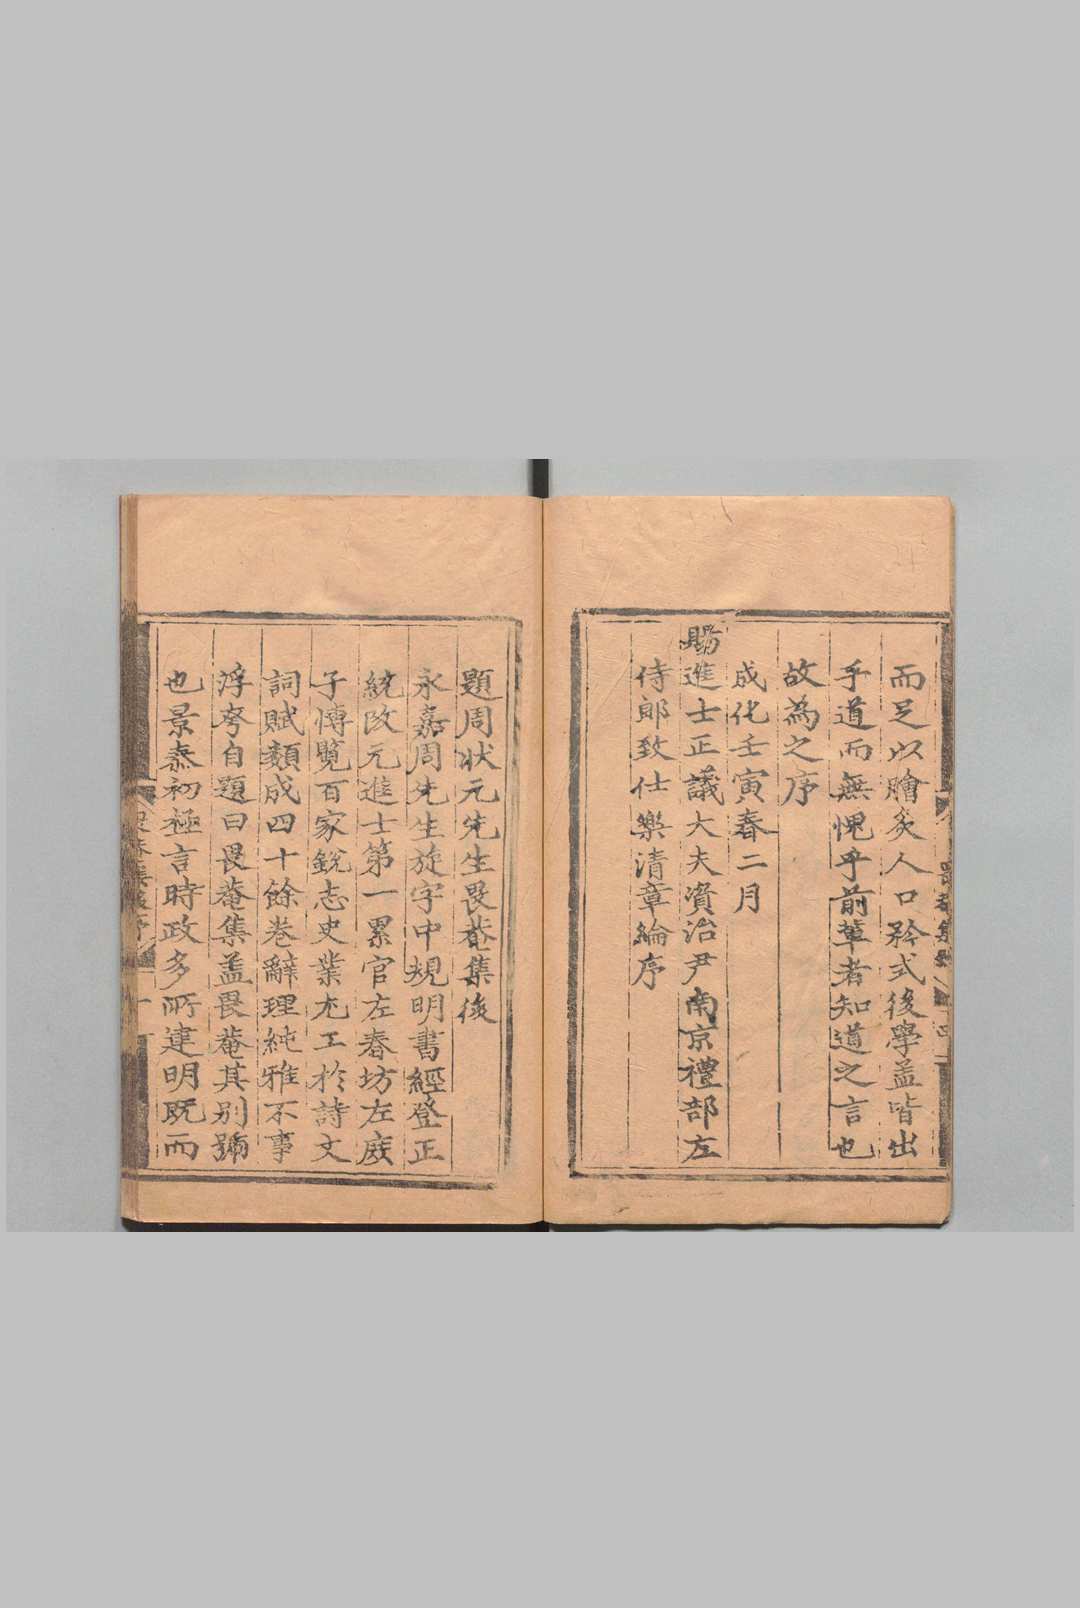 而足以膾炙人口矜式後學盖皆出
乎道而無愧乎前輩者知道之言也
故為之序
成化壬寅春二月
賜進士正議大夫資治尹南京禮部左
侍郎致仕樂清章綸序
題周狀元先生畏菴集後
永嘉周先生旋字中規明書經登正
統改元進士第一累官左春坊左庶
子博覧百家銳志史業尤工於詩文
詞賦類成四十餘卷辭理純雅不事
浮夸自題曰畏菴集盖畏菴其别號
也景泰初極言時政多所建明既而